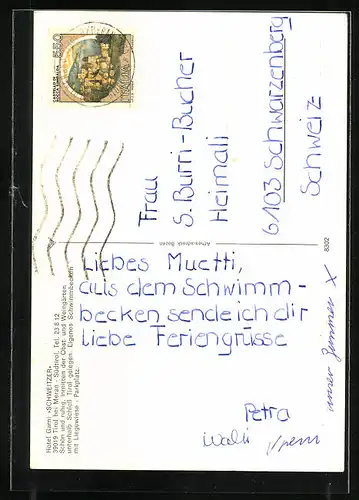 Hotel Garni «SCHWEITZER»
39019 Tirol bei Meran - Südtirol, Tel. 23 8 12
Schön und ruhig, inmitten der Obst- und Weingärten
unterhalb Schloß Tirol gelegen. Eigenes Schwimmbecken
mit Liegewiese - Parkplatz.
Liebes Muetti,
aus dem Schwimm-
becken sende ich dir
liebe Feriengrüsse
Petra
Walti
unser Zimmer X
8302
Frau
S. Burri-Bucher
Heimali
6103 Schwarzenberg
Schweiz